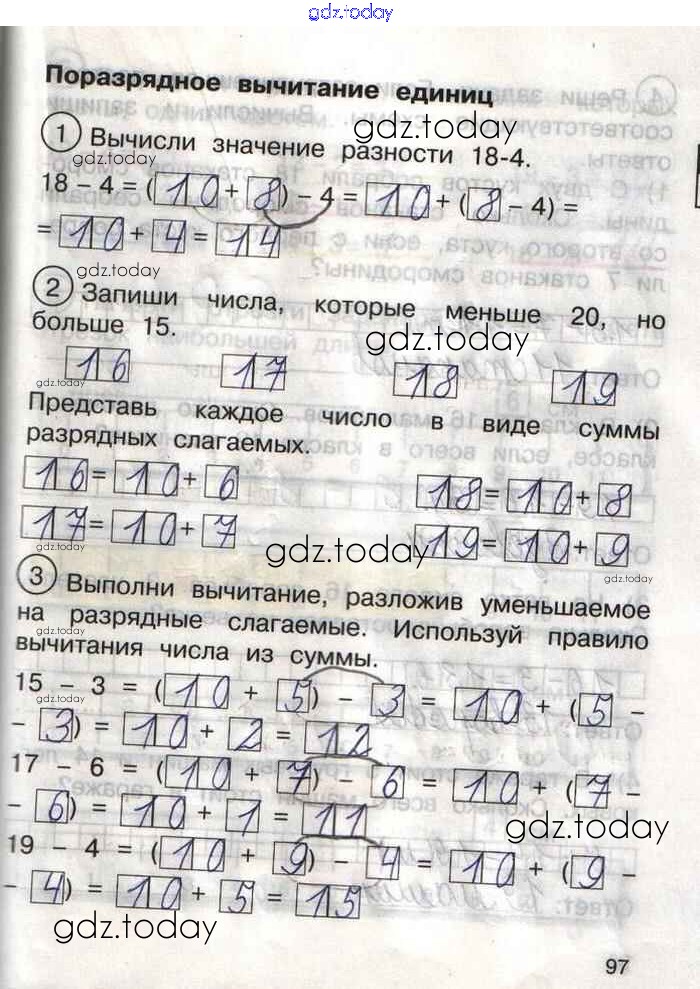 gdz.today
Поразрядное вычитание единиц
1 Вычисли значение разности 18-4.
gdz.today
gdz.today
18 – 4 = (10 + 8) – 4 = 10 + (8 – 4) =
= 10 + 4 = 14
gdz.today
2 Запиши числа, которые меньше 20, но
больше 15.
gdz.today
16 17 18 19
gdz.today
Представь каждое число в виде суммы
разрядных слагаемых.
gdz.today
16 = 10 + 6 18 = 10 + 8
17 = 10 + 7 19 = 10 + 9
gdz.today
gdz.today
3 Выполни вычитание, разложив уменьшаемое
gdz.today
на разрядные слагаемые. Используй правило
gdz.today
вычитания числа из суммы.
15 – 3 = (10 + 5) – 3 = 10 + (5 –
– 3) = 10 + 2 = 12
17 – 6 = (10 + 7) – 6 = 10 + (7 –
– 6) = 10 + 1 = 11
gdz.today
19 – 4 = (10 + 9) – 4 = 10 + (9 –
– 4) = 10 + 5 = 15
gdz.today
gdz.today
97